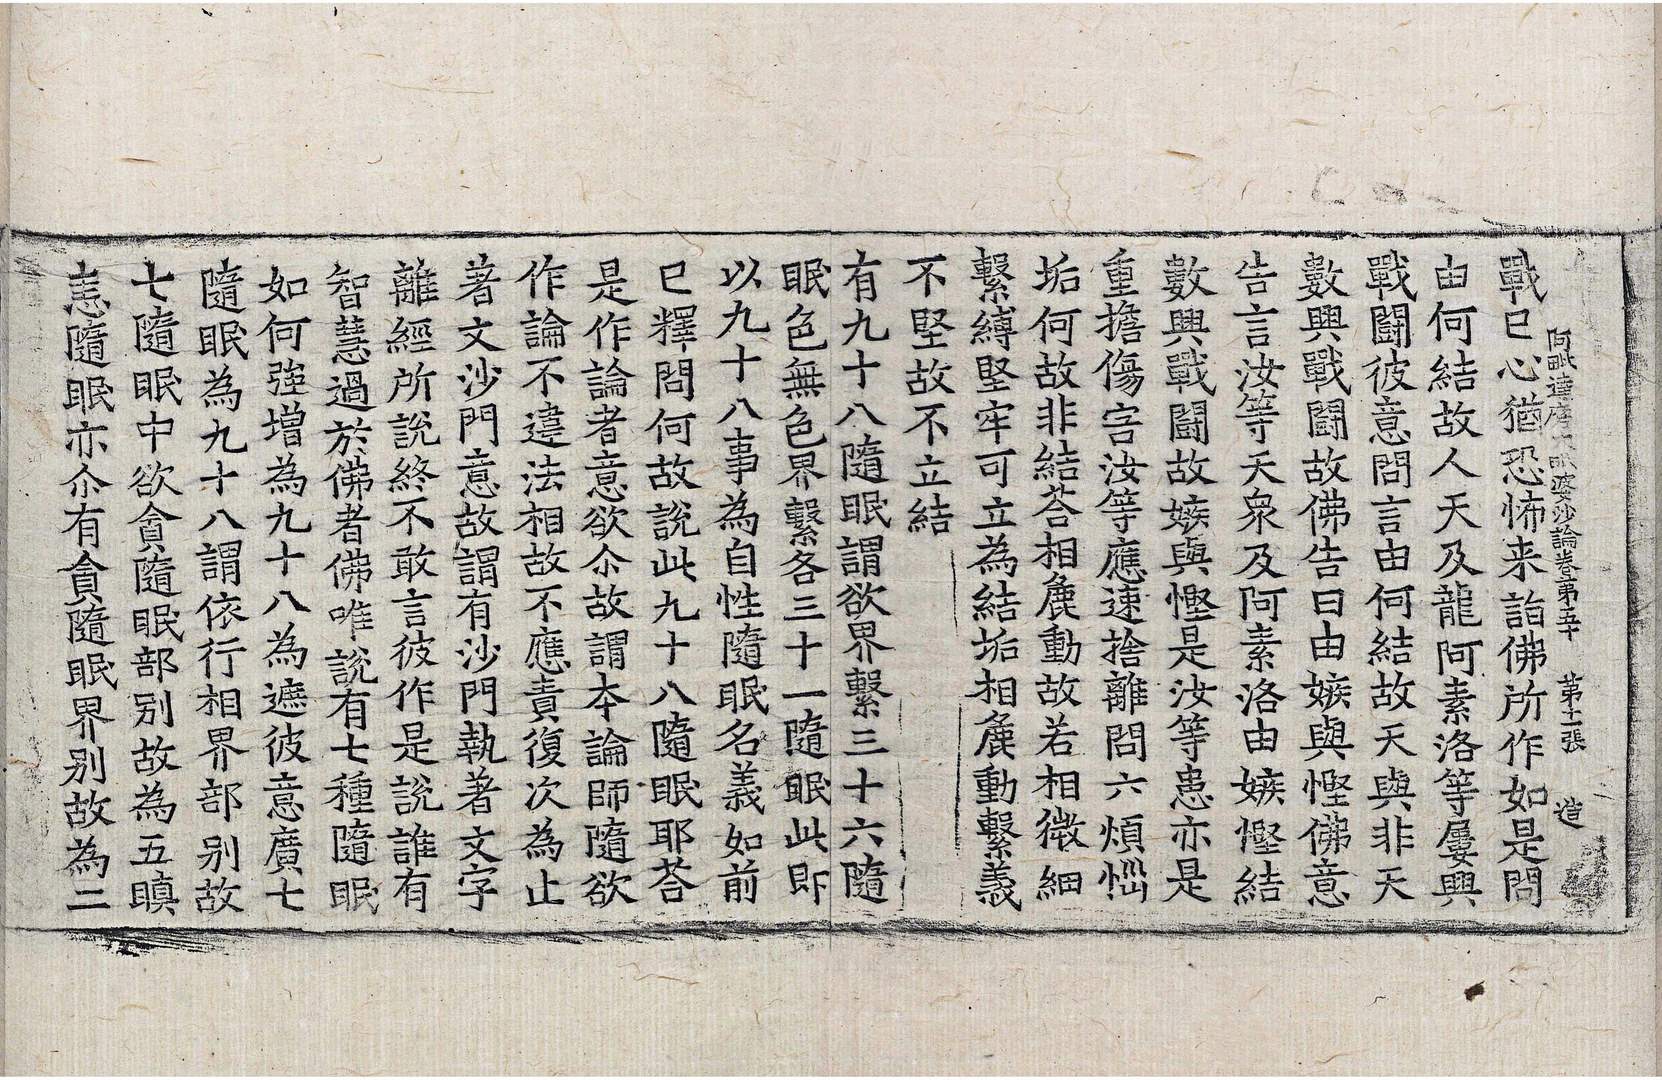 阿毗達磨大毗婆沙論卷第五十 第十二張 造
戰巳心猶恐怖来詣佛所作如是問
由何結故人天及龍阿素洛等屢興
戰鬪彼意問言由何結故天與非天
數興戰鬪故佛告曰由嫉與慳佛意
告言汝等天衆及阿素洛由嫉慳結
數興戰鬪故嫉與慳是汝等患亦是
重擔傷害汝等應速捨離問六煩惱
垢何故非結荅相麁動故若相微細
繫縛堅牢可立為結垢相麁動繫義
不堅故不立結
有九十八隨眠謂欲界繫三十六隨
眠色無色界繫各三十一隨眠此即
以九十八事為自性隨眠名義如前
巳釋問何故說此九十八隨眠耶荅
是作論者意欲尒故謂本論師隨欲
作論不違法相故不應責復次為止
著文沙門意故謂有沙門執著文字
離經所說終不敢言彼作是說誰有
智慧過於佛者佛唯說有七種隨眠
如何強增為九十八為遮彼意廣七
隨眠為九十八謂依行相界部别故
七隨眠中欲貪隨眠部别故為五瞋
恚隨眠亦尒有貪隨眠界别故為二